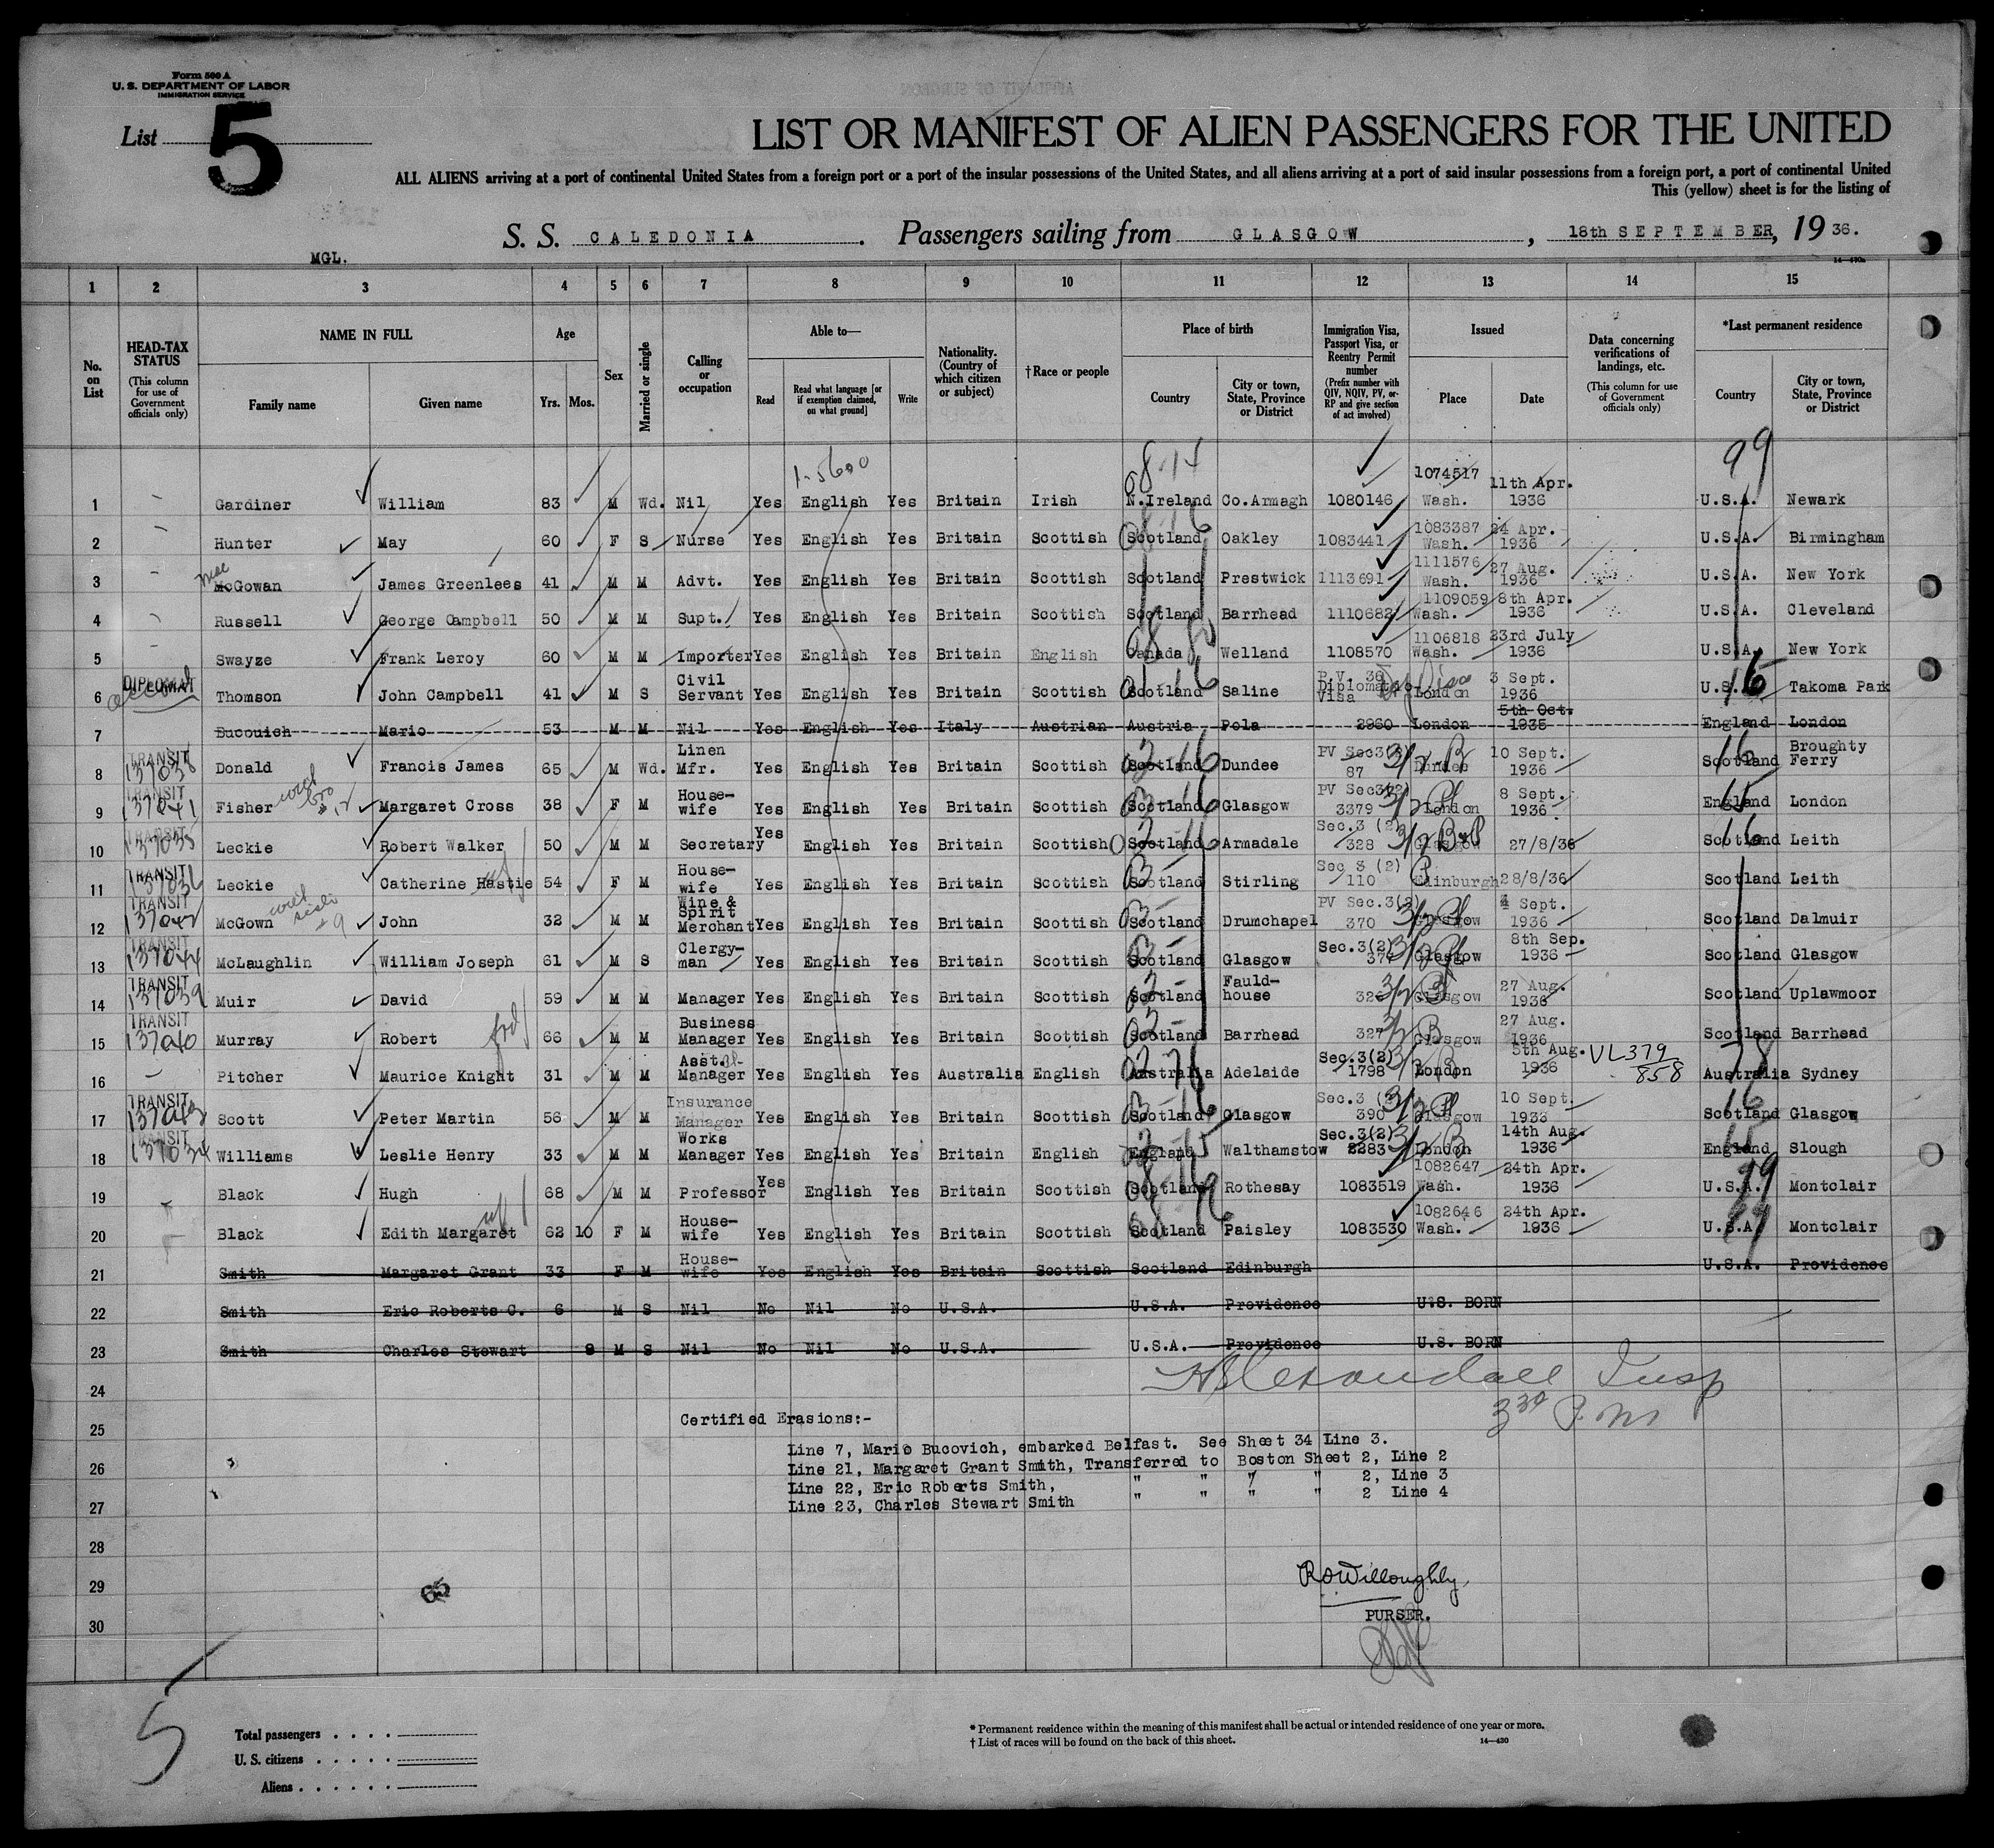 Form 500 A
U. S. DEPARTMENT OF LABOR
IMMIGRATION SERVICE
List 5
LIST OR MANIFEST OF ALIEN PASSENGERS FOR THE UNITED
ALL ALIENS arriving at a port of continental United States from a foreign port or a port of the insular possessions of the United States, and all aliens arriving at a port of said insular possessions from a foreign port, a port of continental United
This (yellow) sheet is for the listing of
S. S. CALEDONIA. Passengers sailing from GLASGOW, 18th SEPTEMBER, 1936.
MGL.
1 2 3 4 5 6 7 8 9 10 11 12 13 14 15
No. on List
HEAD-TAX STATUS (This column for use of Government officials only)
NAME IN FULL Family name Given name
Age Yrs. Mos.
Sex
Married or single
Calling or occupation
Able to— Read Read what language [or if exemption claimed, on what ground] Write
Nationality. (Country of which citizen or subject)
†Race or people
Place of birth Country City or town, State, Province or District
Immigration Visa, Passport Visa, or Reentry Permit number (Prefix number with QIV, NQIV, PV, or RP and give section of act involved)
Issued Place Date
Data concerning verifications of landings, etc. (This column for use of Government officials only)
*Last permanent residence Country City or town, State, Province or District
1-5600 8-14 99
1 Gardiner William 83 M Wd. Nil Yes English Yes Britain Irish N.Ireland Co.Armagh 1080146 1074517 Wash. 11th Apr. 1936 U.S.A. Newark
2 Hunter May 60 F S Nurse Yes English Yes Britain Scottish Scotland Oakley 1083441 1083387 Wash. 24 Apr. 1936 U.S.A. Birmingham
3 Mac McGowan James Greenlees 41 M M Advt. Yes English Yes Britain Scottish Scotland Prestwick 1113691 1111576 Wash. 27 Aug. 1936 U.S.A. New York
4 Russell George Campbell 50 M M Supt. Yes English Yes Britain Scottish Scotland Barrhead 1110682 1109059 Wash. 8th Apr. 1936 U.S.A. Cleveland
5 Swayze Frank Leroy 60 M M Importer Yes English Yes Britain English Canada Welland 1108570 1106818 Wash. 23rd July 1936 U.S.A. New York
6 DIPLOMAT Thomson John Campbell 41 M S Civil Servant Yes English Yes Britain Scottish Scotland Saline P.V. 38 Diplomatic Visa London 3 Sept. 1936 U.S. 16 Takoma Park
7 Bucouich Mario 53 M M Nil Yes English Yes Italy Austrian Austria Pola 2960 London 5th Oct. 1935 England London
8 TRANSIT 137038 Donald Francis James 65 M Wd. Linen Mfr. Yes English Yes Britain Scottish Scotland Dundee PV Sec3(2) 87 Dundee 10 Sept. 1936 Scotland Broughty Ferry
9 TRANSIT 137041 Fisher Margaret Cross 38 F M House-wife Yes English Yes Britain Scottish Scotland Glasgow PV Sec3(2) 3379 London 8 Sept. 1936 England London
10 TRANSIT 137035 Leckie Robert Walker 50 M M Secretary Yes English Yes Britain Scottish Scotland Armadale Sec.3 (2) 328 Glasgow 27/8/36 Scotland Leith
11 TRANSIT Leckie Catherine Hastie 54 F M House-wife Yes English Yes Britain Scottish Scotland Stirling Sec 3 (2) 110 Edinburgh 28/8/36 Scotland Leith
12 TRANSIT 137042 McGown John 32 M M Wine & Spirit Merchant Yes English Yes Britain Scottish Scotland Drumchapel PV Sec.3(2) 370 Glasgow 4 Sept. 1936 Scotland Dalmuir
13 TRANSIT 137044 McLaughlin William Joseph 61 M S Clergy-man Yes English Yes Britain Scottish Scotland Glasgow Sec.3(2) Glasgow 8th Sep. 1936 Scotland Glasgow
14 TRANSIT 137039 Muir David 59 M M Manager Yes English Yes Britain Scottish Scotland Fauld-house Glasgow 27 Aug. 1936 Scotland Uplawmoor
15 TRANSIT 137040 Murray Robert 66 M M Business Manager Yes English Yes Britain Scottish Scotland Barrhead 327 Glasgow 27 Aug. 1936 Scotland Barrhead
16 Pitcher Maurice Knight 31 M M Asst. Manager Yes English Yes Australia English Australia Adelaide Sec.3(2) 1798 London 5th Aug. 1936 VL379/858 Australia Sydney
17 TRANSIT Scott Peter Martin 56 M M Insurance Manager Yes English Yes Britain Scottish Scotland Glasgow Sec.3 (2) 390 Glasgow 10 Sept. 1933 Scotland Glasgow
18 TRANSIT 137034 Williams Leslie Henry 33 M M Works Manager Yes English Yes Britain English England Walthamstow Sec.3(2) 2283 London 14th Aug. 1936 England Slough
19 Black Hugh 68 M M Professor Yes English Yes Britain Scottish Scotland Rothesay 1083519 1082647 Wash. 24th Apr. 1936 U.S.A. Montclair
20 Black Edith Margaret 62 10 F M House-wife Yes English Yes Britain Scottish Scotland Paisley 1083530 1082646 Wash. 24th Apr. 1936 U.S.A. Montclair
21 Smith Margaret Grant 33 F M House-wife Yes English Yes Britain Scottish Scotland Edinburgh U.S.A. Providence
22 Smith Eric Roberts C. 6 M S Nil No Nil No U.S.A. U.S.A. Providence U.S. BORN
23 Smith Charles Stewart 9 M S Nil No Nil No U.S.A. U.S.A. Providence U.S. BORN
24
Insp
3 30 P.M
25 Certified Erasions:-
Line 7, Mario Bucovich, embarked Belfast. See Sheet 34 Line 3.
26 Line 21, Margaret Grant Smith, Transferred to Boston Sheet 2, Line 2
Line 22, Eric Roberts Smith, " " " " 2, Line 3
27 Line 23, Charles Stewart Smith " " " " 2 Line 4
28
29 65 R O Willoughby
PURSER.
30
5
Total passengers . . . .
U. S. citizens . . . . .
Aliens . . . . . .
* Permanent residence within the meaning of this manifest shall be actual or intended residence of one year or more.
† List of races will be found on the back of this sheet. 14—430